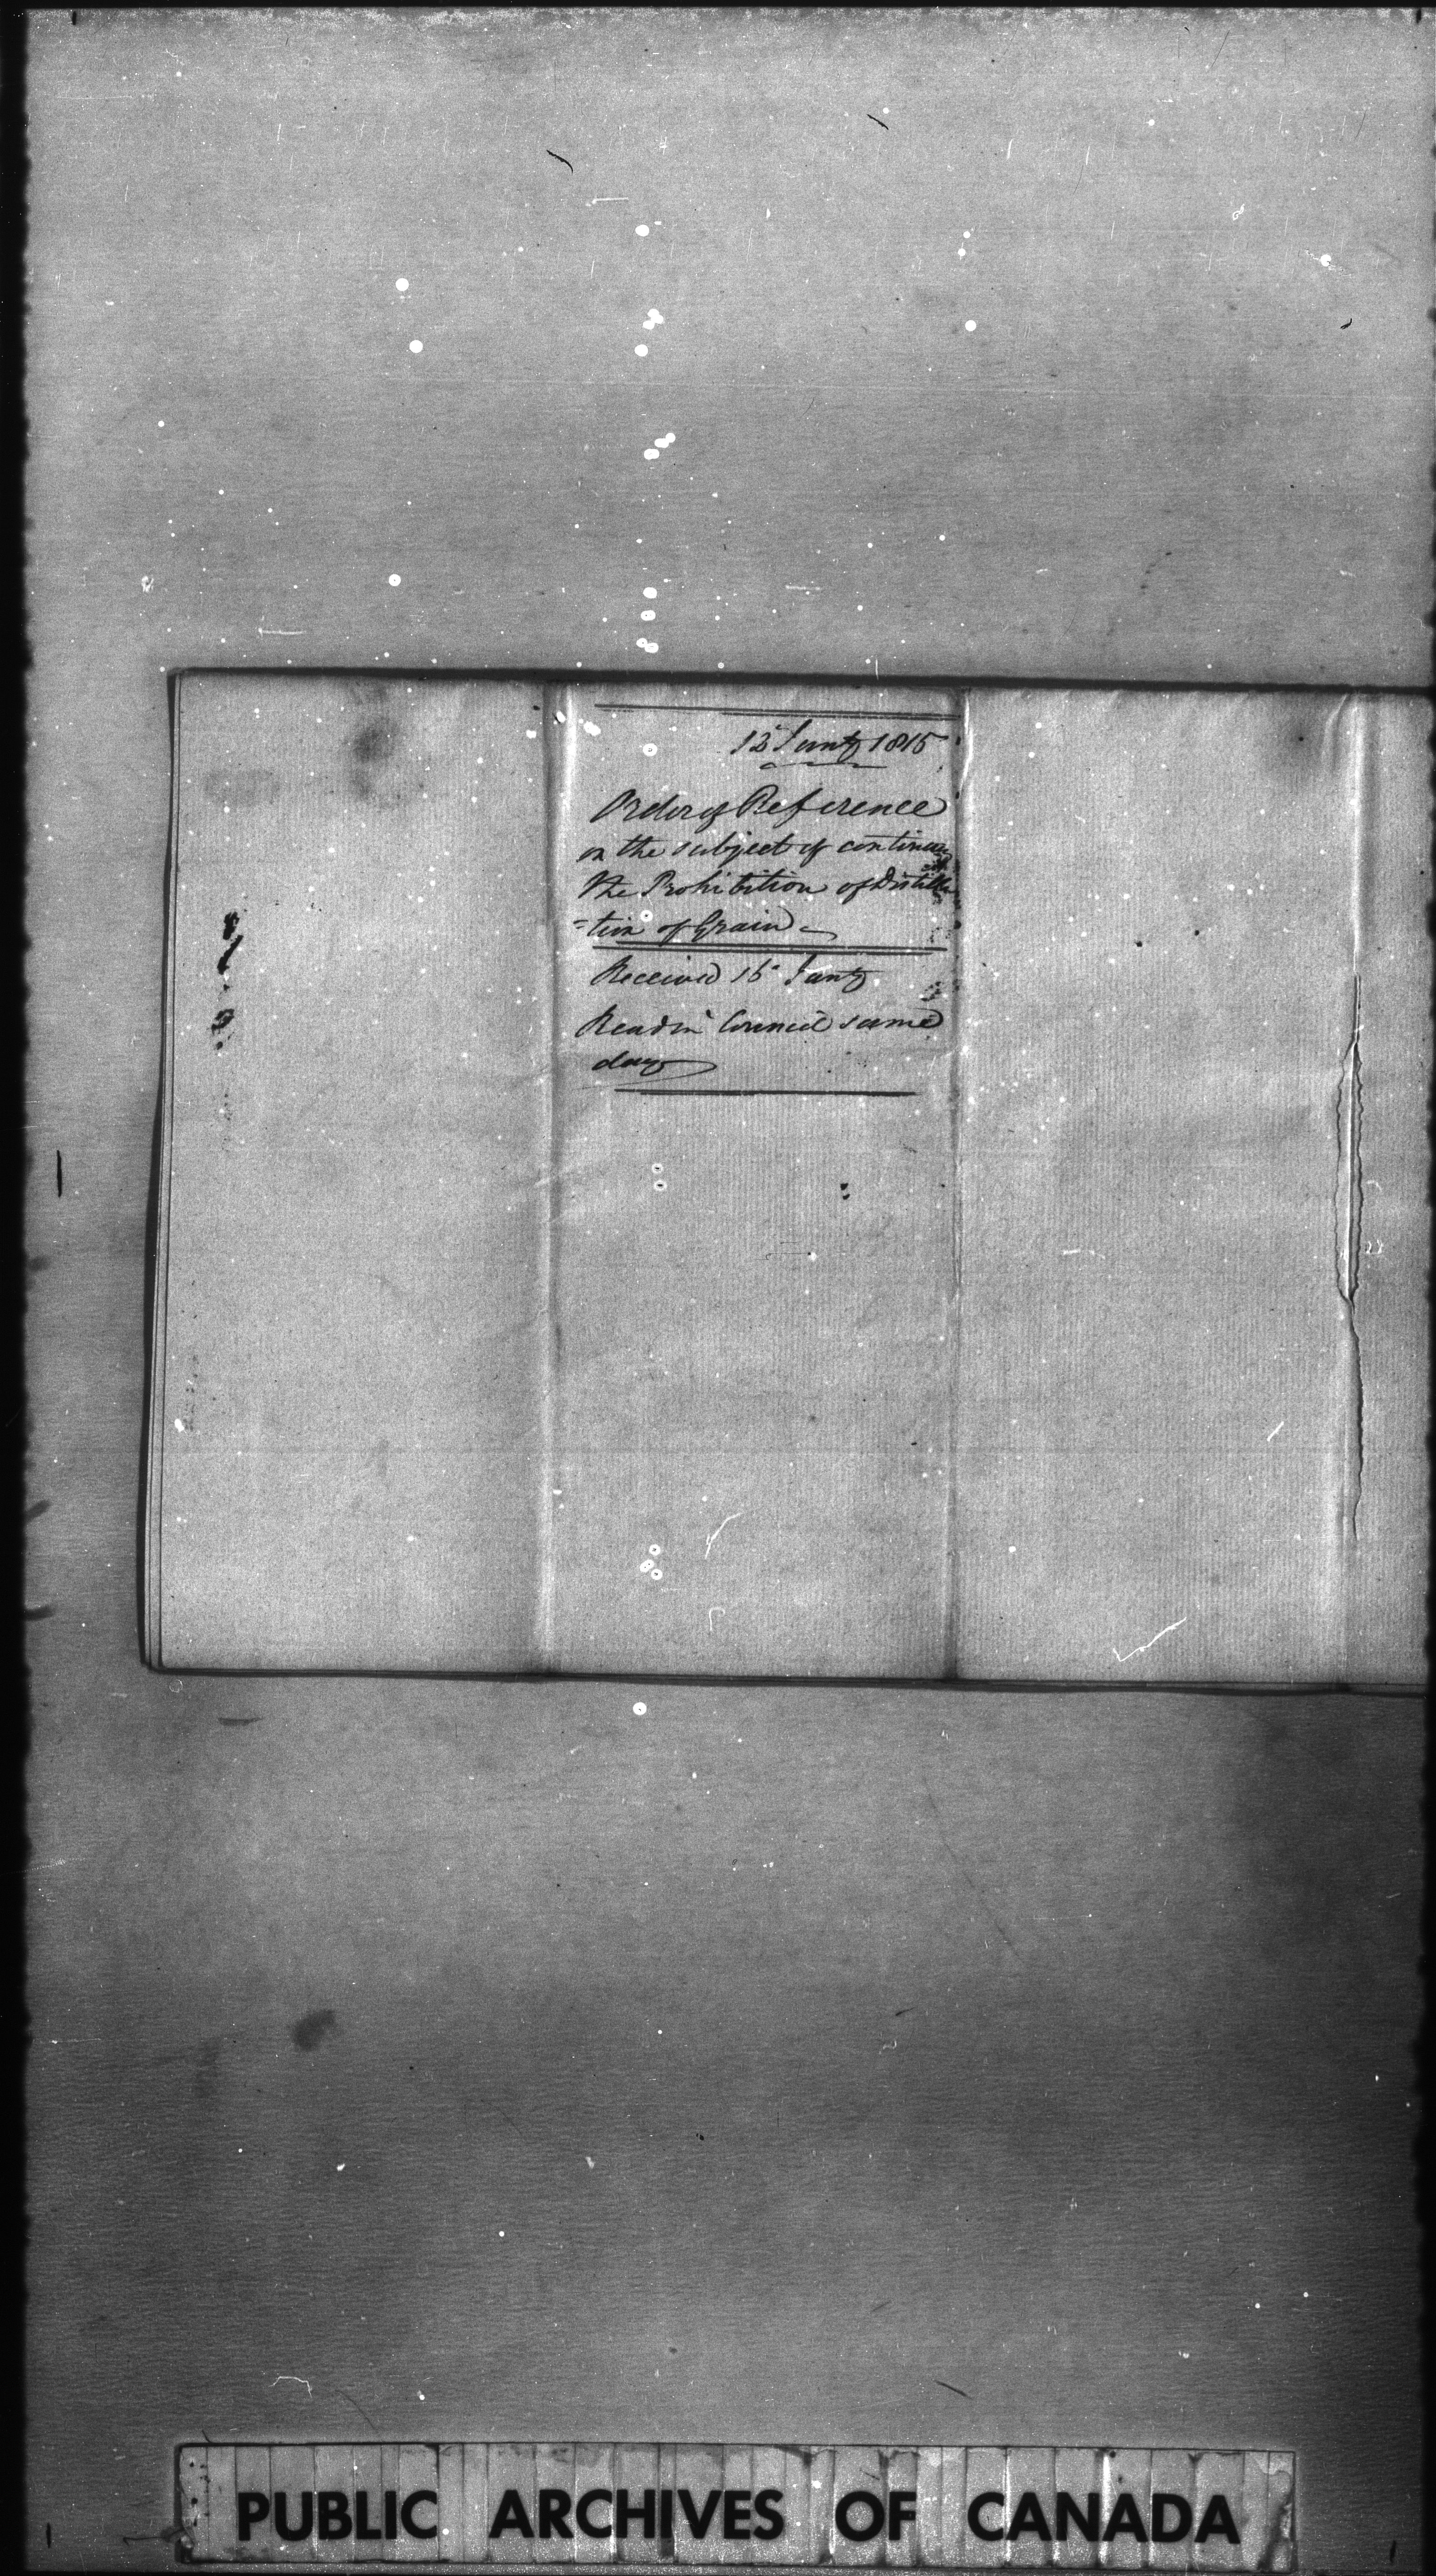 Jan'y 1815
Order of Reference
on the subject of continuing
the Prohibition of Distilla
=tion of Grain
Received 16 Jan'y
Read in Council same
day
PUBLIC ARCHIVES OF CANADA